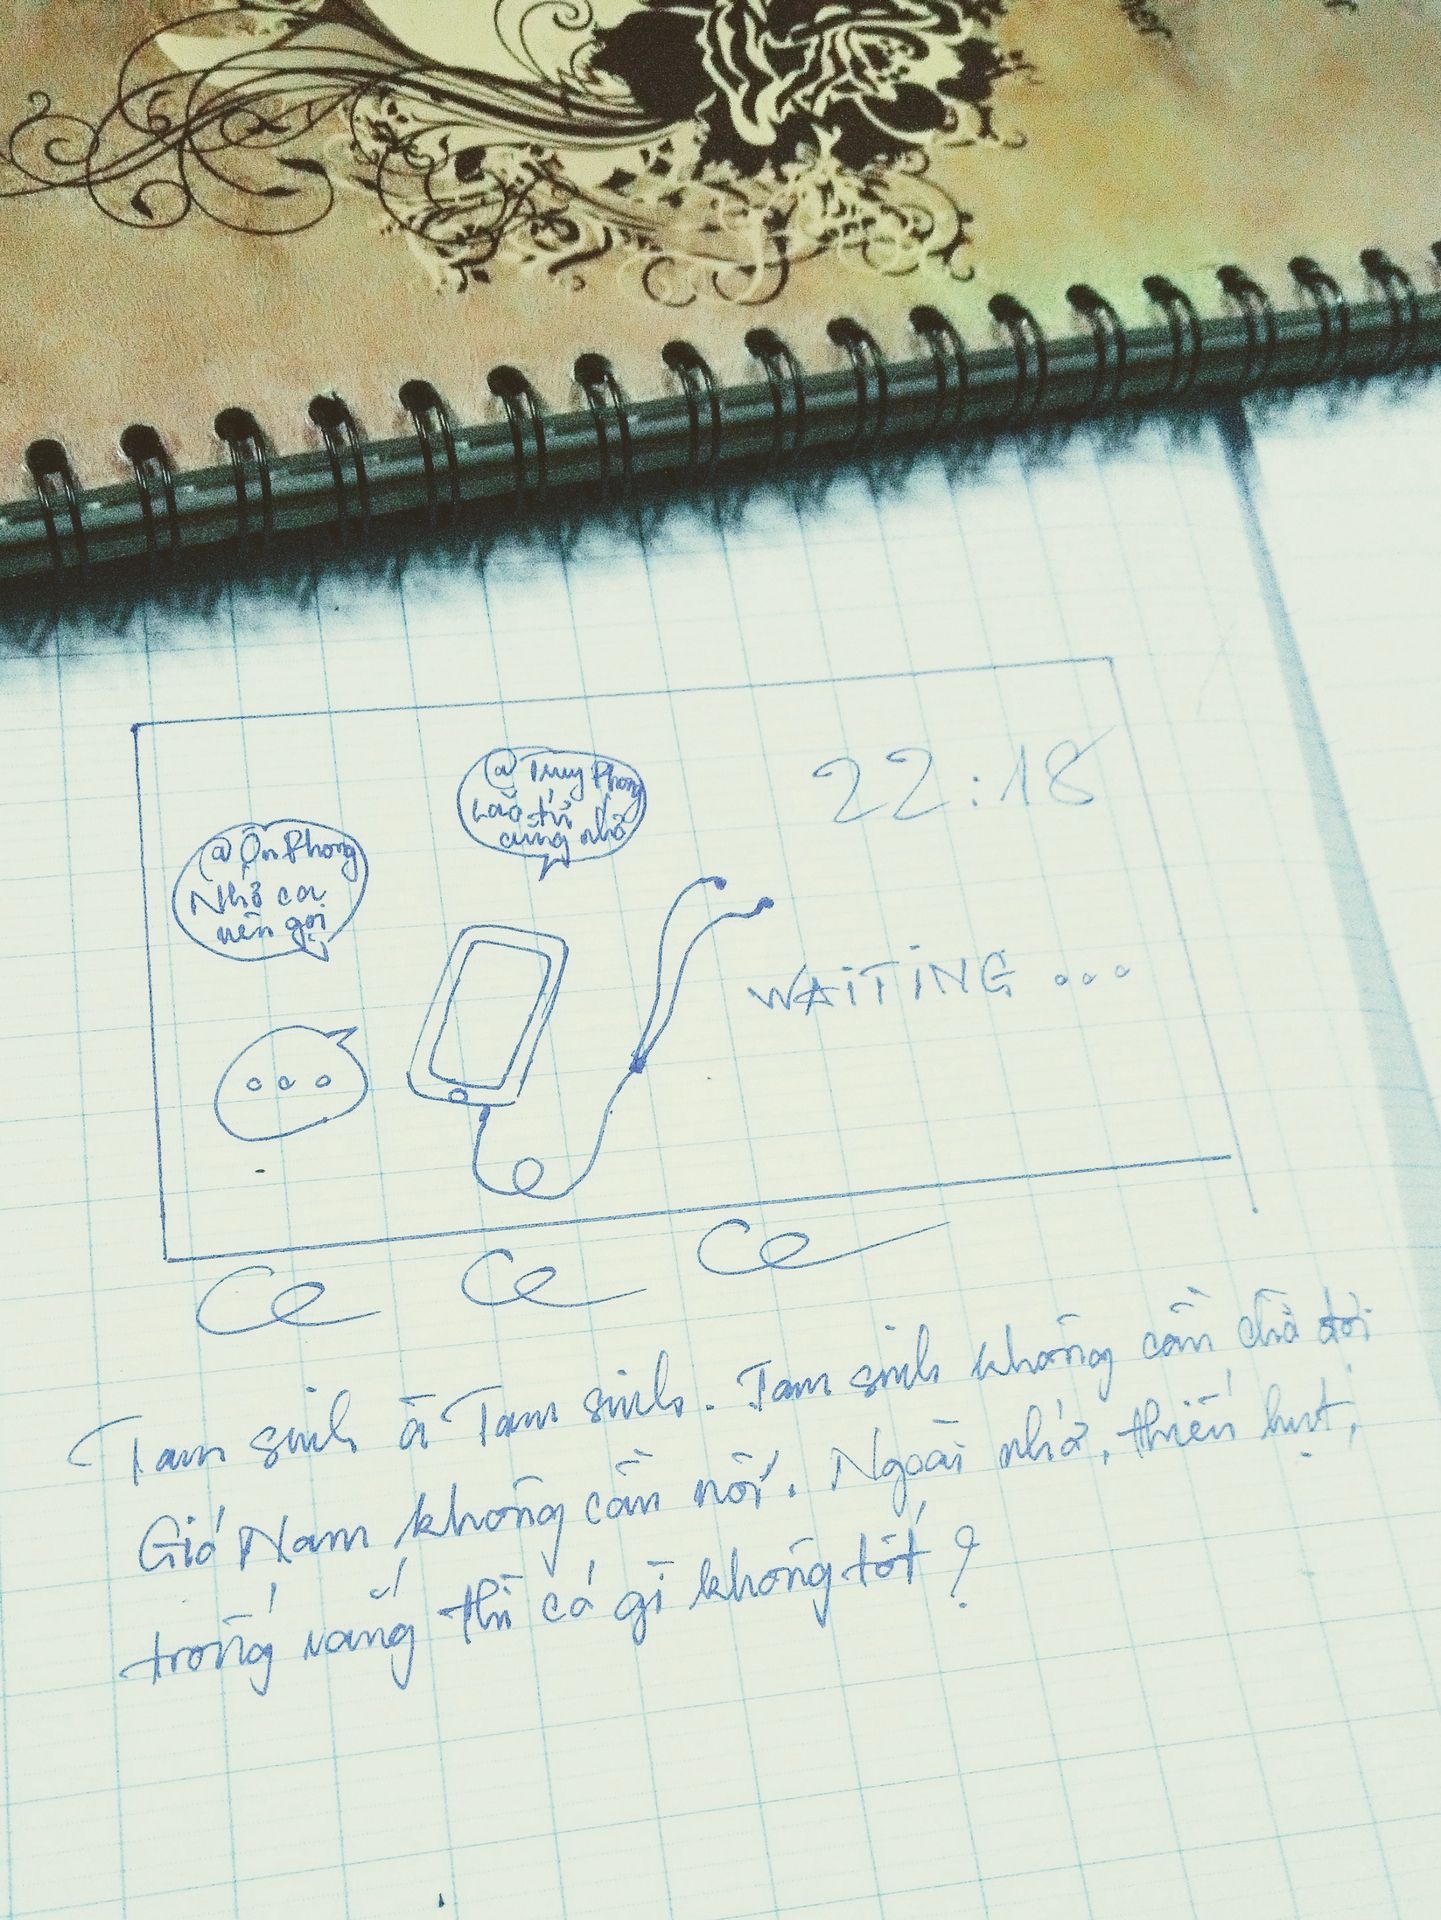 22:18
@Truy Phong
Lão tử
cũng nhớ
@Ôn Phong
Nhớ ca
nên gọi
WAiTiNG ...
...
Tam sinh à Tam sinh. Tam sinh không cần chờ đợi
Gió Nam không cần nói. Ngoài nhớ, thiếu hụt,
trống vắng thì có gì không tốt?